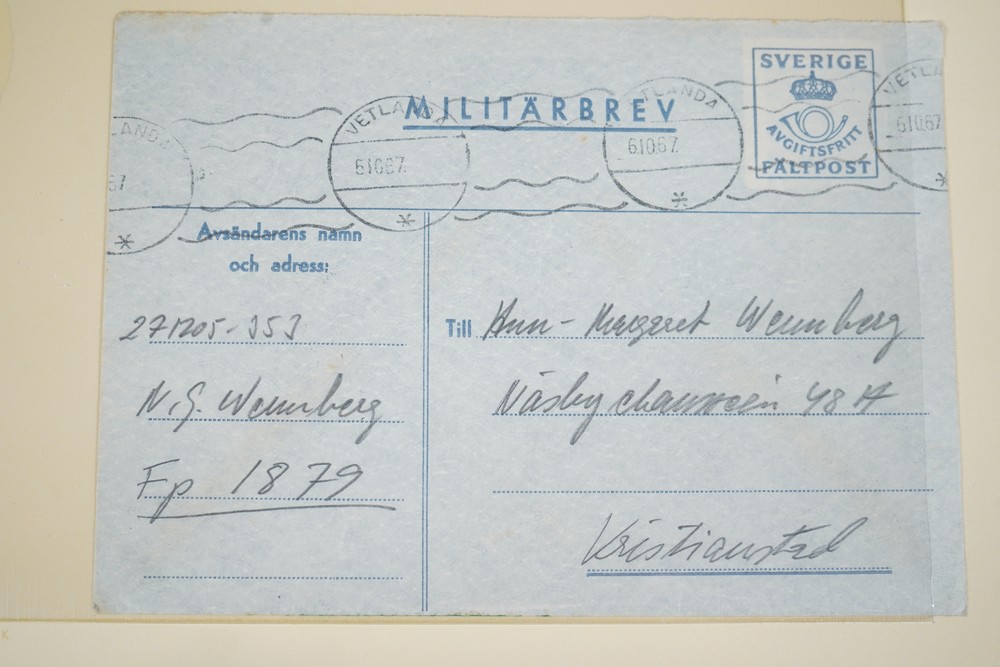 SVERIGE
AVGIFTSFRITT
FÄLTPOST
MILITÄRBREV
LANDA
67
VETLANDA
6.10.67.
TLANDA
6.10.67.
VETLA
6.10.67
Avsändarens namn
och adress:
271205-353
N.G. Wennberg
Fp 1879
Till Ann-Margaret Wennberg
Näsbychaussein 48 A
Kristianstad
K